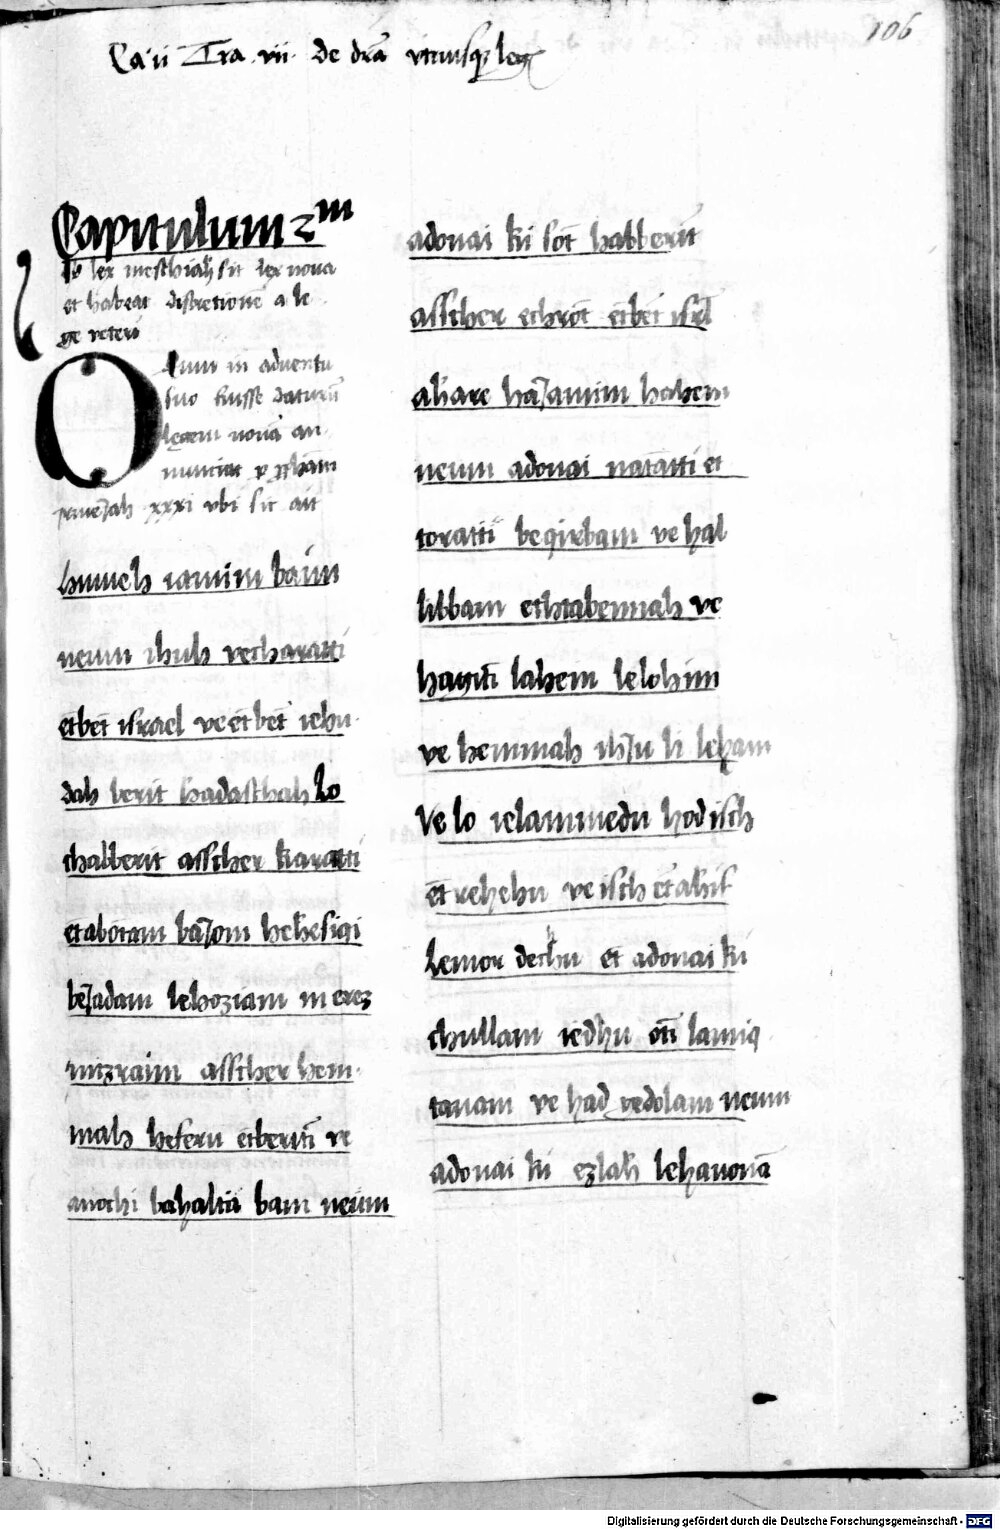 106
Ca ii Tra vii de dr̄a utriusq; leg
Capitulum 2m
lex meschiah sit lex nova
et habeat discretionem a le
ge veteri
Quum in adventu
suo fuisse daturū
legem novā an
nunciat p
xxxi ubi sit ait
hinneh iamim baim
neum ihuh vecharatti
etbet israel ve et bet iehu
dah berit hadaschah lo
chabberit asscher karatti
etabotam baiom hehesiqi
beiadam lehoziam m erez
mizraim asscher hem
mah heferu etberiti ve
anochi bahalti bam neum
adonai ki sot habberit
asscher echrot etbet isrl
ahare haiamim hahem
neum adonai natatti et
toratti beqirbam ve hal
libbam echtabennah ve
hayiti lahem lelohim
ve hemmah ihiu li leham
Ve lo ielammedu hod isch
et rehehu ve isch et ahif
Lemor dechu et adonai ki
chullam iedhu oti lamiq
tanam ve had gedolam neum
adonai ki ezlah lehavona
Digitalisierung gefördert durch die Deutsche Forschungsgemeinschaft - DFG